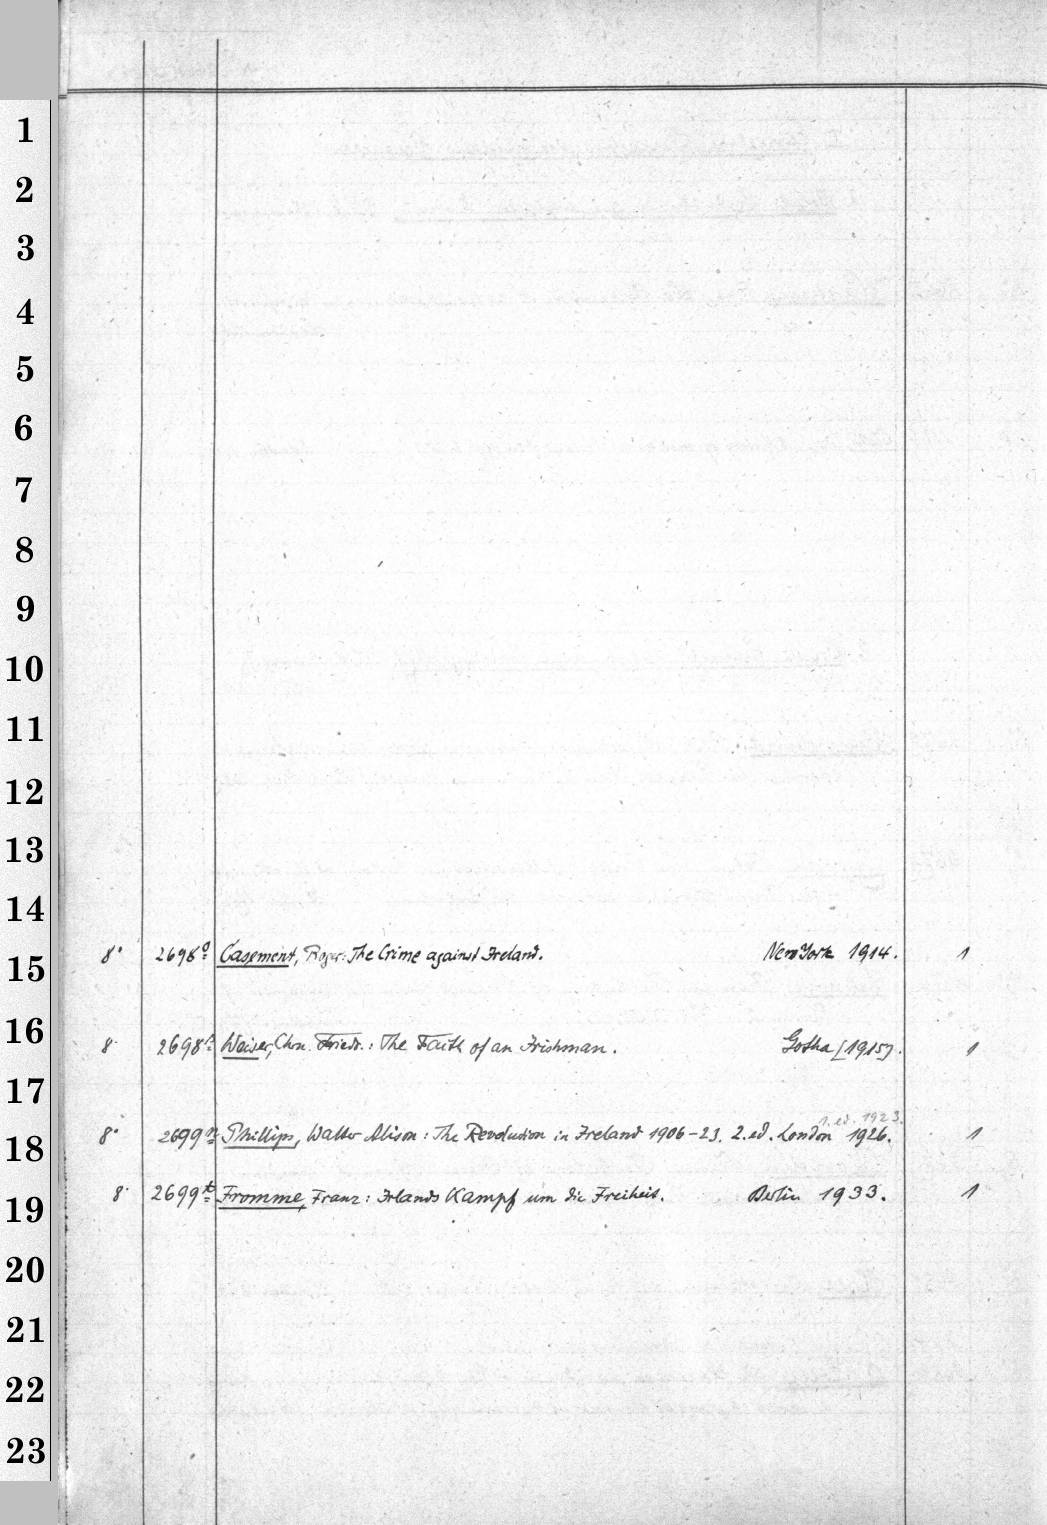 1
2
3
4
5
6
7
8
9
10
11
12
13
14
15
8° 2698 Casement, Roger: The Crime against Ireland. New York 1914. 1
16
8° 2698 Weiser, Chn. Friedr.: The Faith of an Irishman. Gotha [1915]. 1
17
1. ed. 1923.
18
8° 2699 n Phillips, Walter Alison: The Revolution in Ireland 1906-23. 2. ed. London 1926. 1
19
8° 2699 t Fromme, Franz: Irlands Kampf um die Freiheit. Berlin 1933. 1
20
21
22
23